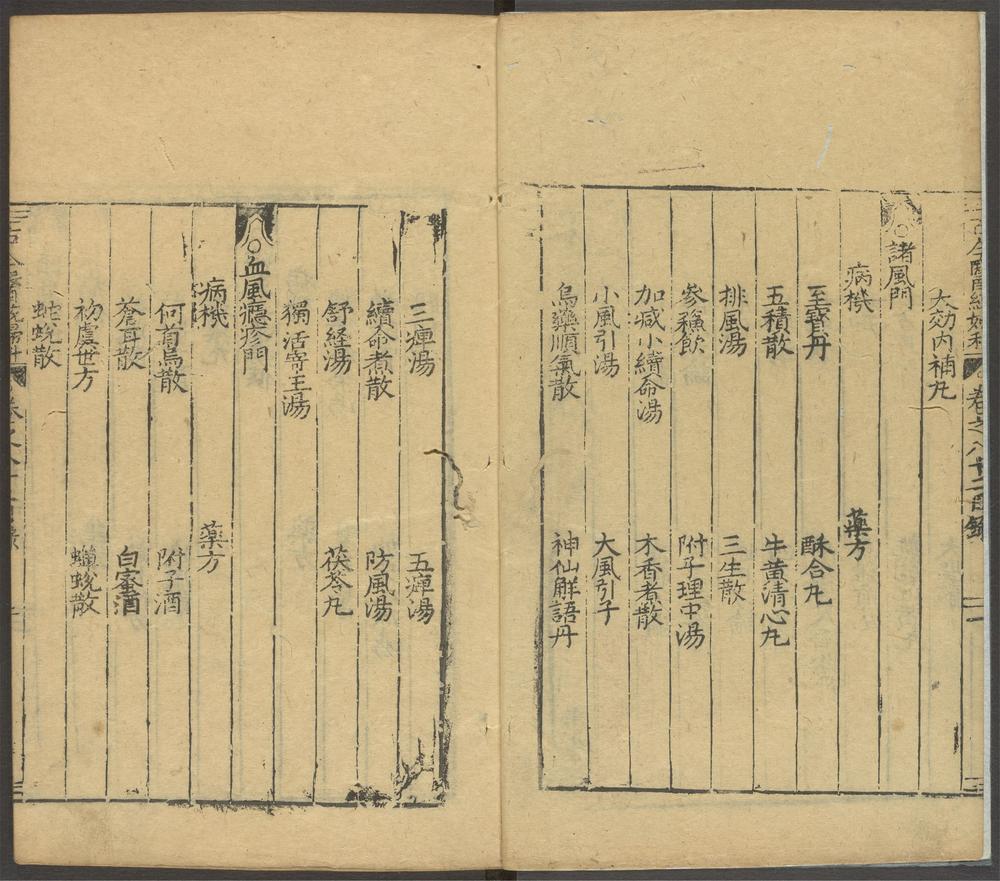 卷之八十二目錄
大効内補丸
○諸風門
病機　藥方
至寶丹　酥合丸
五積散　牛黃清心丸
排風湯　三生散
參蘓飲　附子理中湯
加减小續命湯　木香煮散
小風引湯　大風引子
烏藥順氣散　神仙解語丹
三痺湯　五痺湯
續命煮散　防風湯
舒経湯　茯苓丸
獨活寄生湯
○血風癮疹門
病機　藥方
何首烏散　附子酒
蒼耳散　白蜜酒
初虞世方　蠟蛻散
蛇蛻散